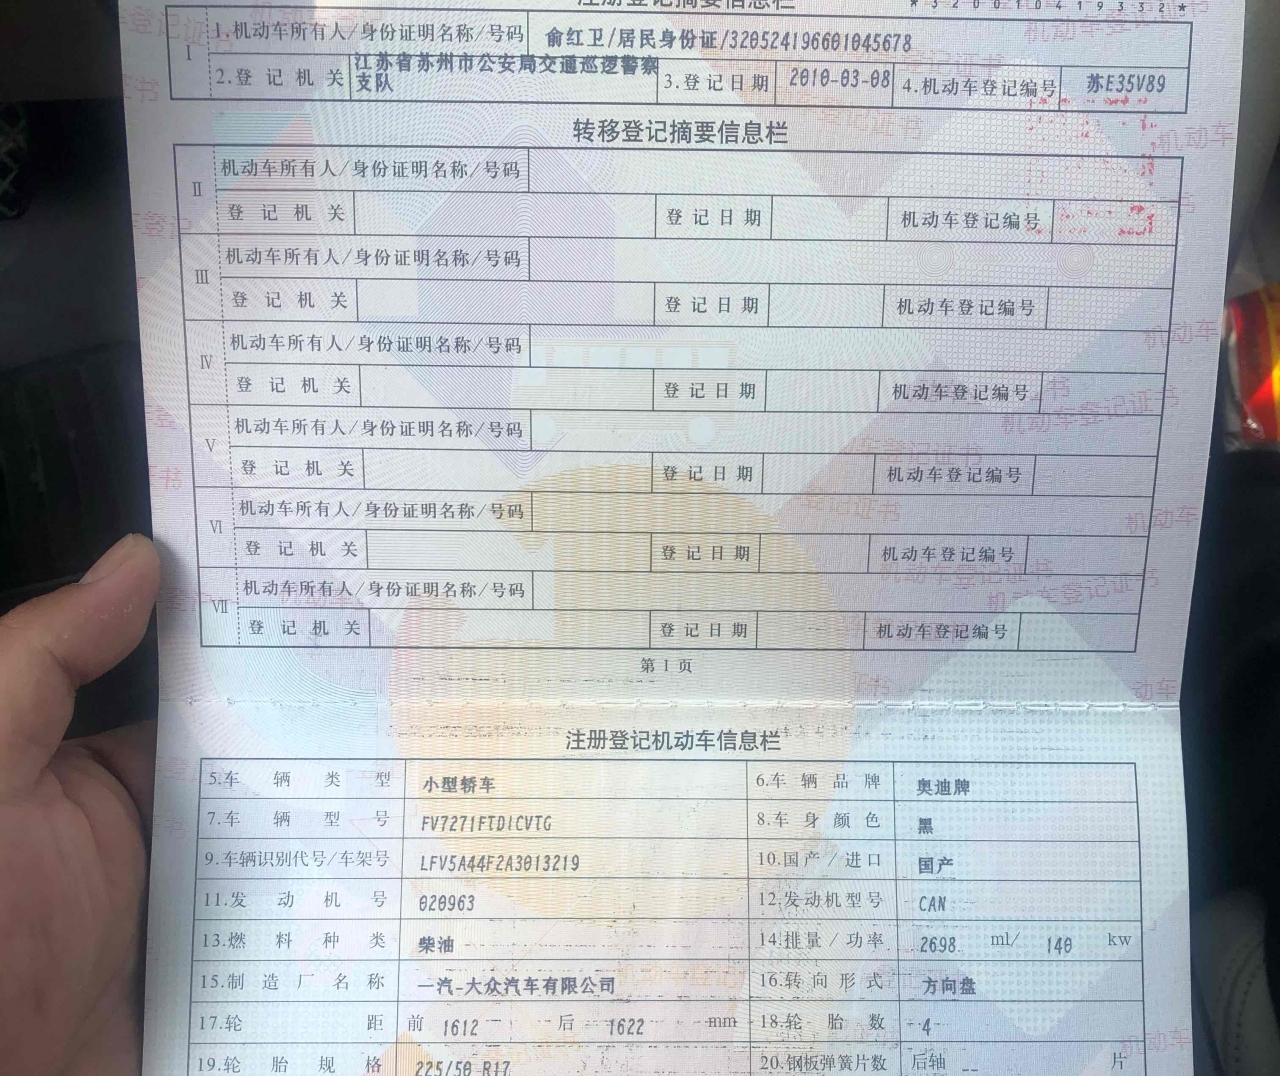 注册登记摘要信息栏
*320010419332*
I
1.机动车所有人/身份证明名称/号码 俞红卫/居民身份证/320524196601045678
2.登记机关 江苏省苏州市公安局交通巡逻警察支队 3.登记日期 2010-03-08 4.机动车登记编号 苏E35V89
转移登记摘要信息栏
II
机动车所有人/身份证明名称/号码
登记机关 登记日期 机动车登记编号
III
机动车所有人/身份证明名称/号码
登记机关 登记日期 机动车登记编号
IV
机动车所有人/身份证明名称/号码
登记机关 登记日期 机动车登记编号
V
机动车所有人/身份证明名称/号码
登记机关 登记日期 机动车登记编号
VI
机动车所有人/身份证明名称/号码
登记机关 登记日期 机动车登记编号
VII
机动车所有人/身份证明名称/号码
登记机关 登记日期 机动车登记编号
第 1 页
注册登记机动车信息栏
5.车辆类型 小型轿车 6.车辆品牌 奥迪牌
7.车辆型号 FV7271FTDICVTG 8.车身颜色 黑
9.车辆识别代号/车架号 LFV5A44F2A3013219 10.国产/进口 国产
11.发动机号 020963 12.发动机型号 CAN
13.燃料种类 柴油 14.排量/功率 2698 ml/ 140 kw
15.制造厂名称 一汽-大众汽车有限公司 16.转向形式 方向盘
17.轮距 前 1612 后 1622 mm 18.轮胎数 4
19.轮胎规格 225/50 R17 20.钢板弹簧片数 后轴 -- 片